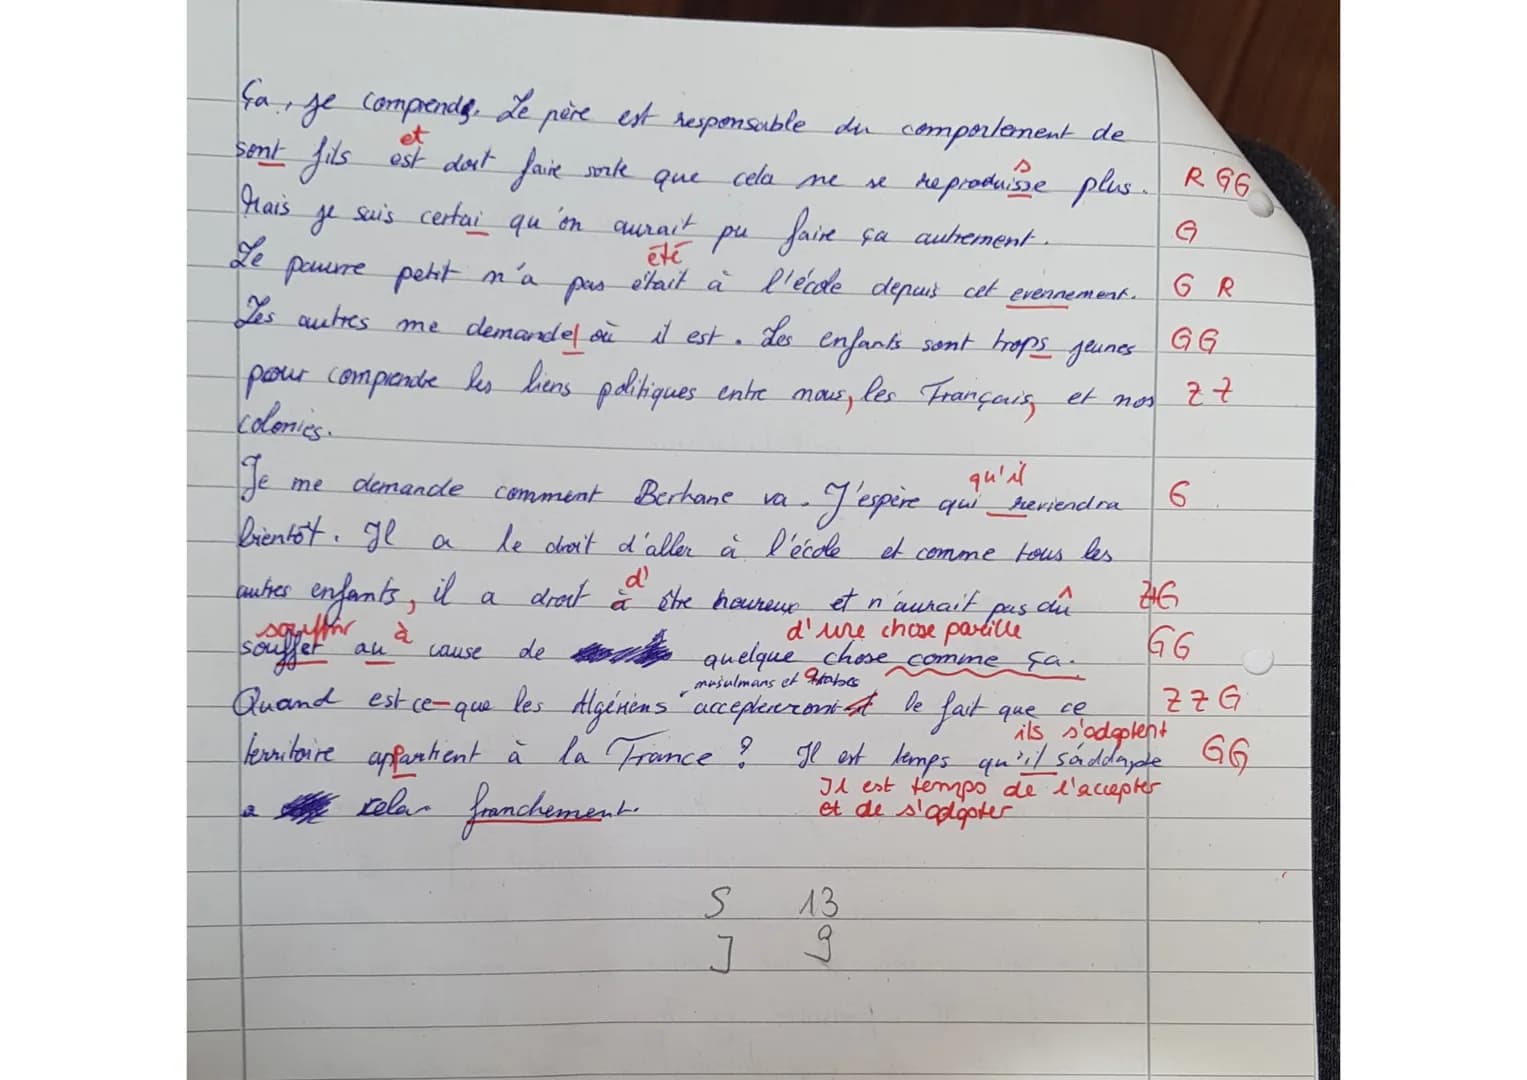 Ça, je comprends. Le père est responsable du comportement de
et s
sont fils est doit faire sorte que cela ne se reproduisse plus. R GG
Mais je suis certai qu'on aurait pu faire ça autrement. G
été
Le pauvre petit n'a pas était à l'école depuis cet evennement. G R
Les autres me demande où il est. Les enfants sont trops jeunes GG
pour comprendre les liens politiques entre nous, les Français, et nos Z Z
colonies.
qu'il
Je me demande comment Berhane va. J'espère qui reviendra G
bientôt. Il a le droit d'aller à l'école et comme tous les
d'
autres enfants, il a droit à être heureux et n'aurait pas dû ZG
souffrir à d'une chose pareille
souffet au cause de quelque chose comme ça. GG
musulmans et Arabes
Quand est-ce-que les Algériens le fait que ce Z Z G
ils s'adaptent
territoire appartient à la France ? Il est temps qu'il s'addapte GG
Il est temps de l'accepter
a cela franchement.
et de s'adapter
S 13
J 9